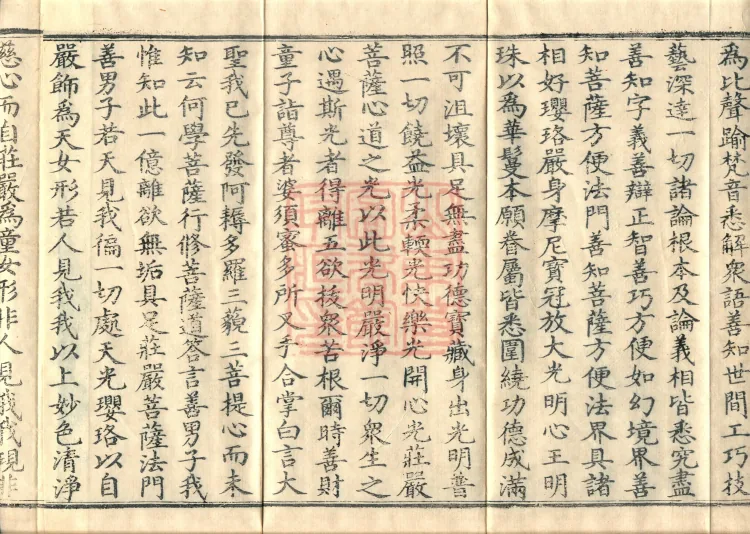 為比聲踰梵音悉解衆語善知世間工巧技
藝深達一切諸論根本及論義相皆悉究盡
善知字義善辯正智善巧方便如幻境界善
知菩薩方便法門善知菩薩方便法界具諸
相好瓔珞嚴身摩尼寶冠放大光明心王明
珠以為華鬘本願眷屬皆悉圍繞功德成滿
不可沮壞具足無盡功德寶藏身出光明普
照一切饒益光柔輭光快樂光開心光莊嚴
菩薩心道之光以此光明嚴淨一切衆生之
心遇斯光者得離五欲拔衆苦根爾時善財
童子詣尊者婆須蜜多所叉手合掌白言大
聖我已先發阿耨多羅三藐三菩提心而未
知云何學菩薩行修菩薩道答言善男子我
惟知此一億離欲無垢具足莊嚴菩薩法門
善男子若天見我徧一切處天光瓔珞以自
嚴飾為天女形若人見我我以上妙色清淨
慈心而自莊嚴為童女形非人見我我現非